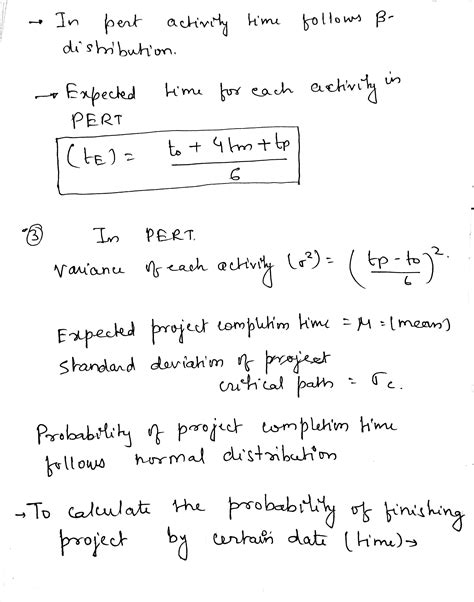 → In pert activity time follows β-
distribution.
→ Expected time for each activity in
PERT
(tE) = to + 4tm + tp / 6
③ In PERT.
Variance of each activity (σ²) = (tp - to / 6)².
Expected project completion time = μ = (mean)
Standard deviation of project
critical path = σc.
Probability of project completion time
follows normal distribution
→ To calculate the probability of finishing
project by certain date (time) →